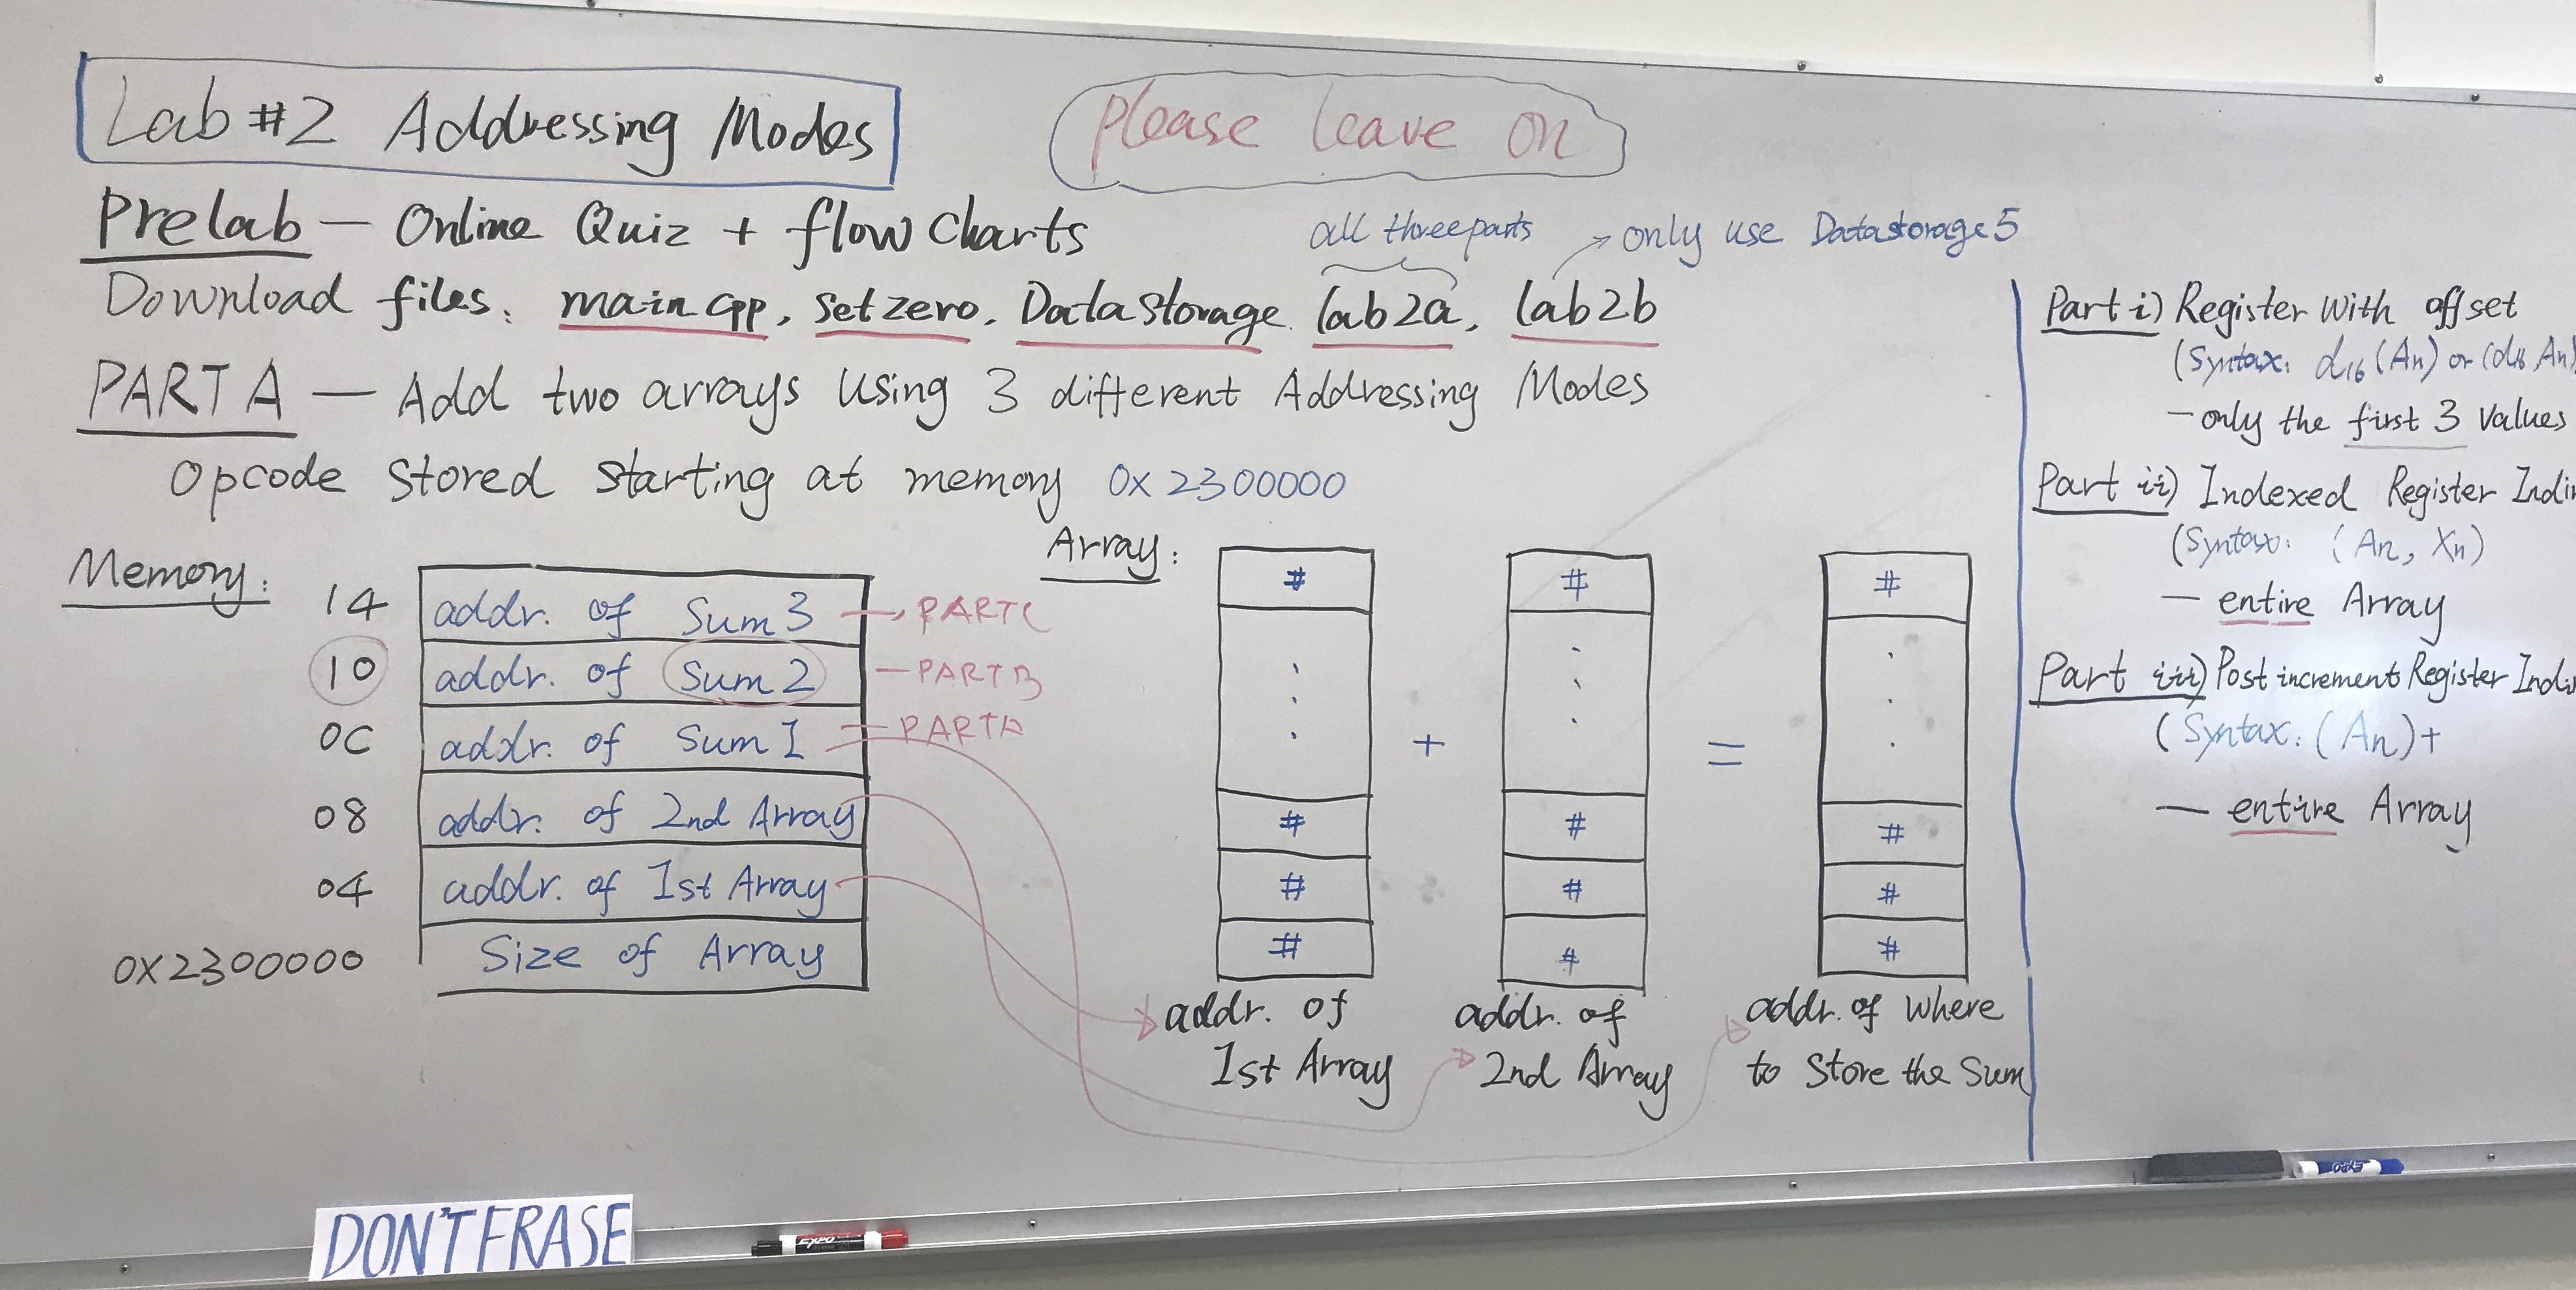 Lab #2 Addressing Modes
Please leave on
Prelab — Online Quiz + flow Charts
all three parts
only use Datastorage5
Download files: main cpp, Setzero, DataStorage. lab2a, lab2b
PART A — Add two arrays using 3 different Addressing Modes
Opcode stored starting at memory 0x2300000
Memory:
14 addr. of Sum 3 → PART C
10 addr. of Sum 2 — PART B
0C addr. of Sum 1 PART A
08 addr. of 2nd Array
04 addr. of 1st Array
0x2300000 Size of Array
Array:
# # #
+ =
# # #
# # #
# # #
addr. of 1st Array
addr. of 2nd Array
addr. of where
to store the Sum
Part i) Register with offset
(Syntax: d16 (An) or (d16 An)
— only the first 3 values
Part ii) Indexed Register Indi
(Syntax: (An, Xn)
— entire Array
Part iii) Post increment Register Indi
(Syntax: (An)+
— entire Array
DON'T ERASE
EXPO
EXPO